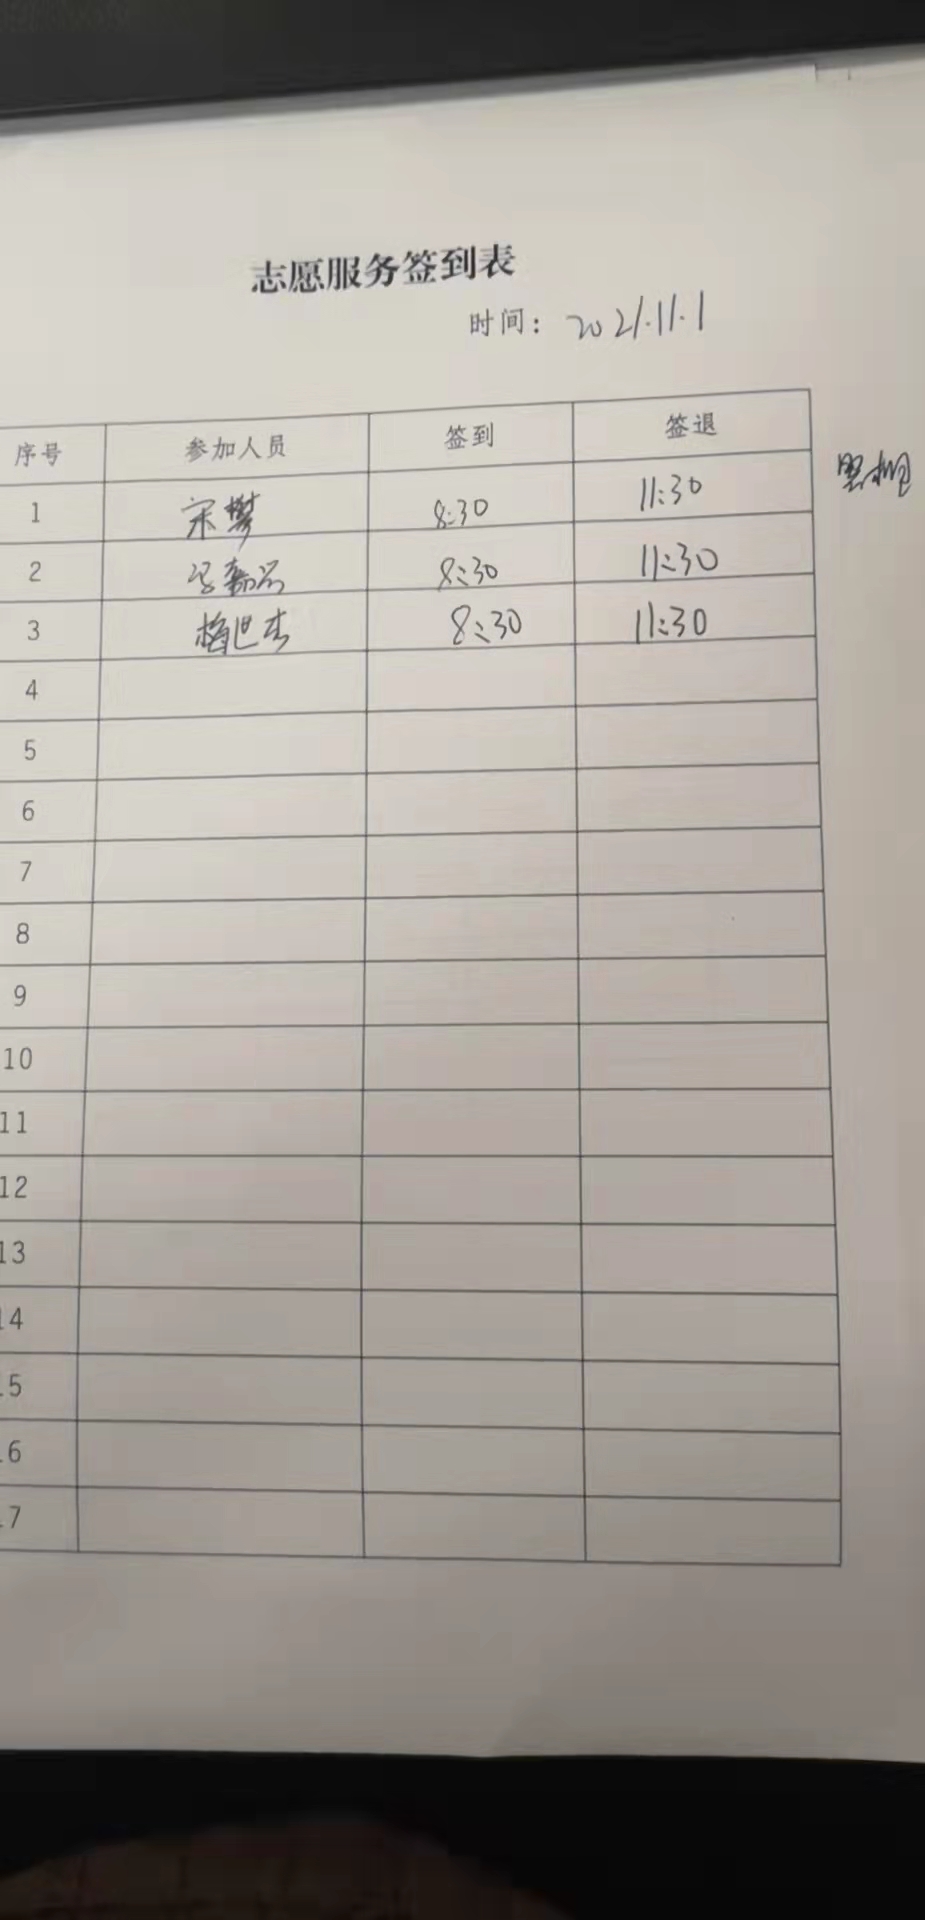 志愿服务签到表
时间: 2021.11.1
序号 参加人员 签到 签退
1 宋 8:30 11:30
2 8:30 11:30
3 梅世杰 8:30 11:30
4
5
6
7
8
9
10
11
12
13
14
15
16
17